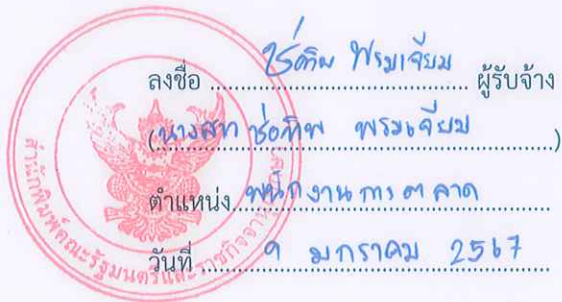 ลงชื่อ ช่อทิพ พรมเจียม ผู้รับจ้าง
(นางสาว ช่อทิพ พรมเจียม)
ตำแหน่ง พนักงานการตลาด
วันที่ 9 มกราคม 2567
สำนักพิมพ์คณะรัฐมนตรีและราชกิจจานุเบกษา